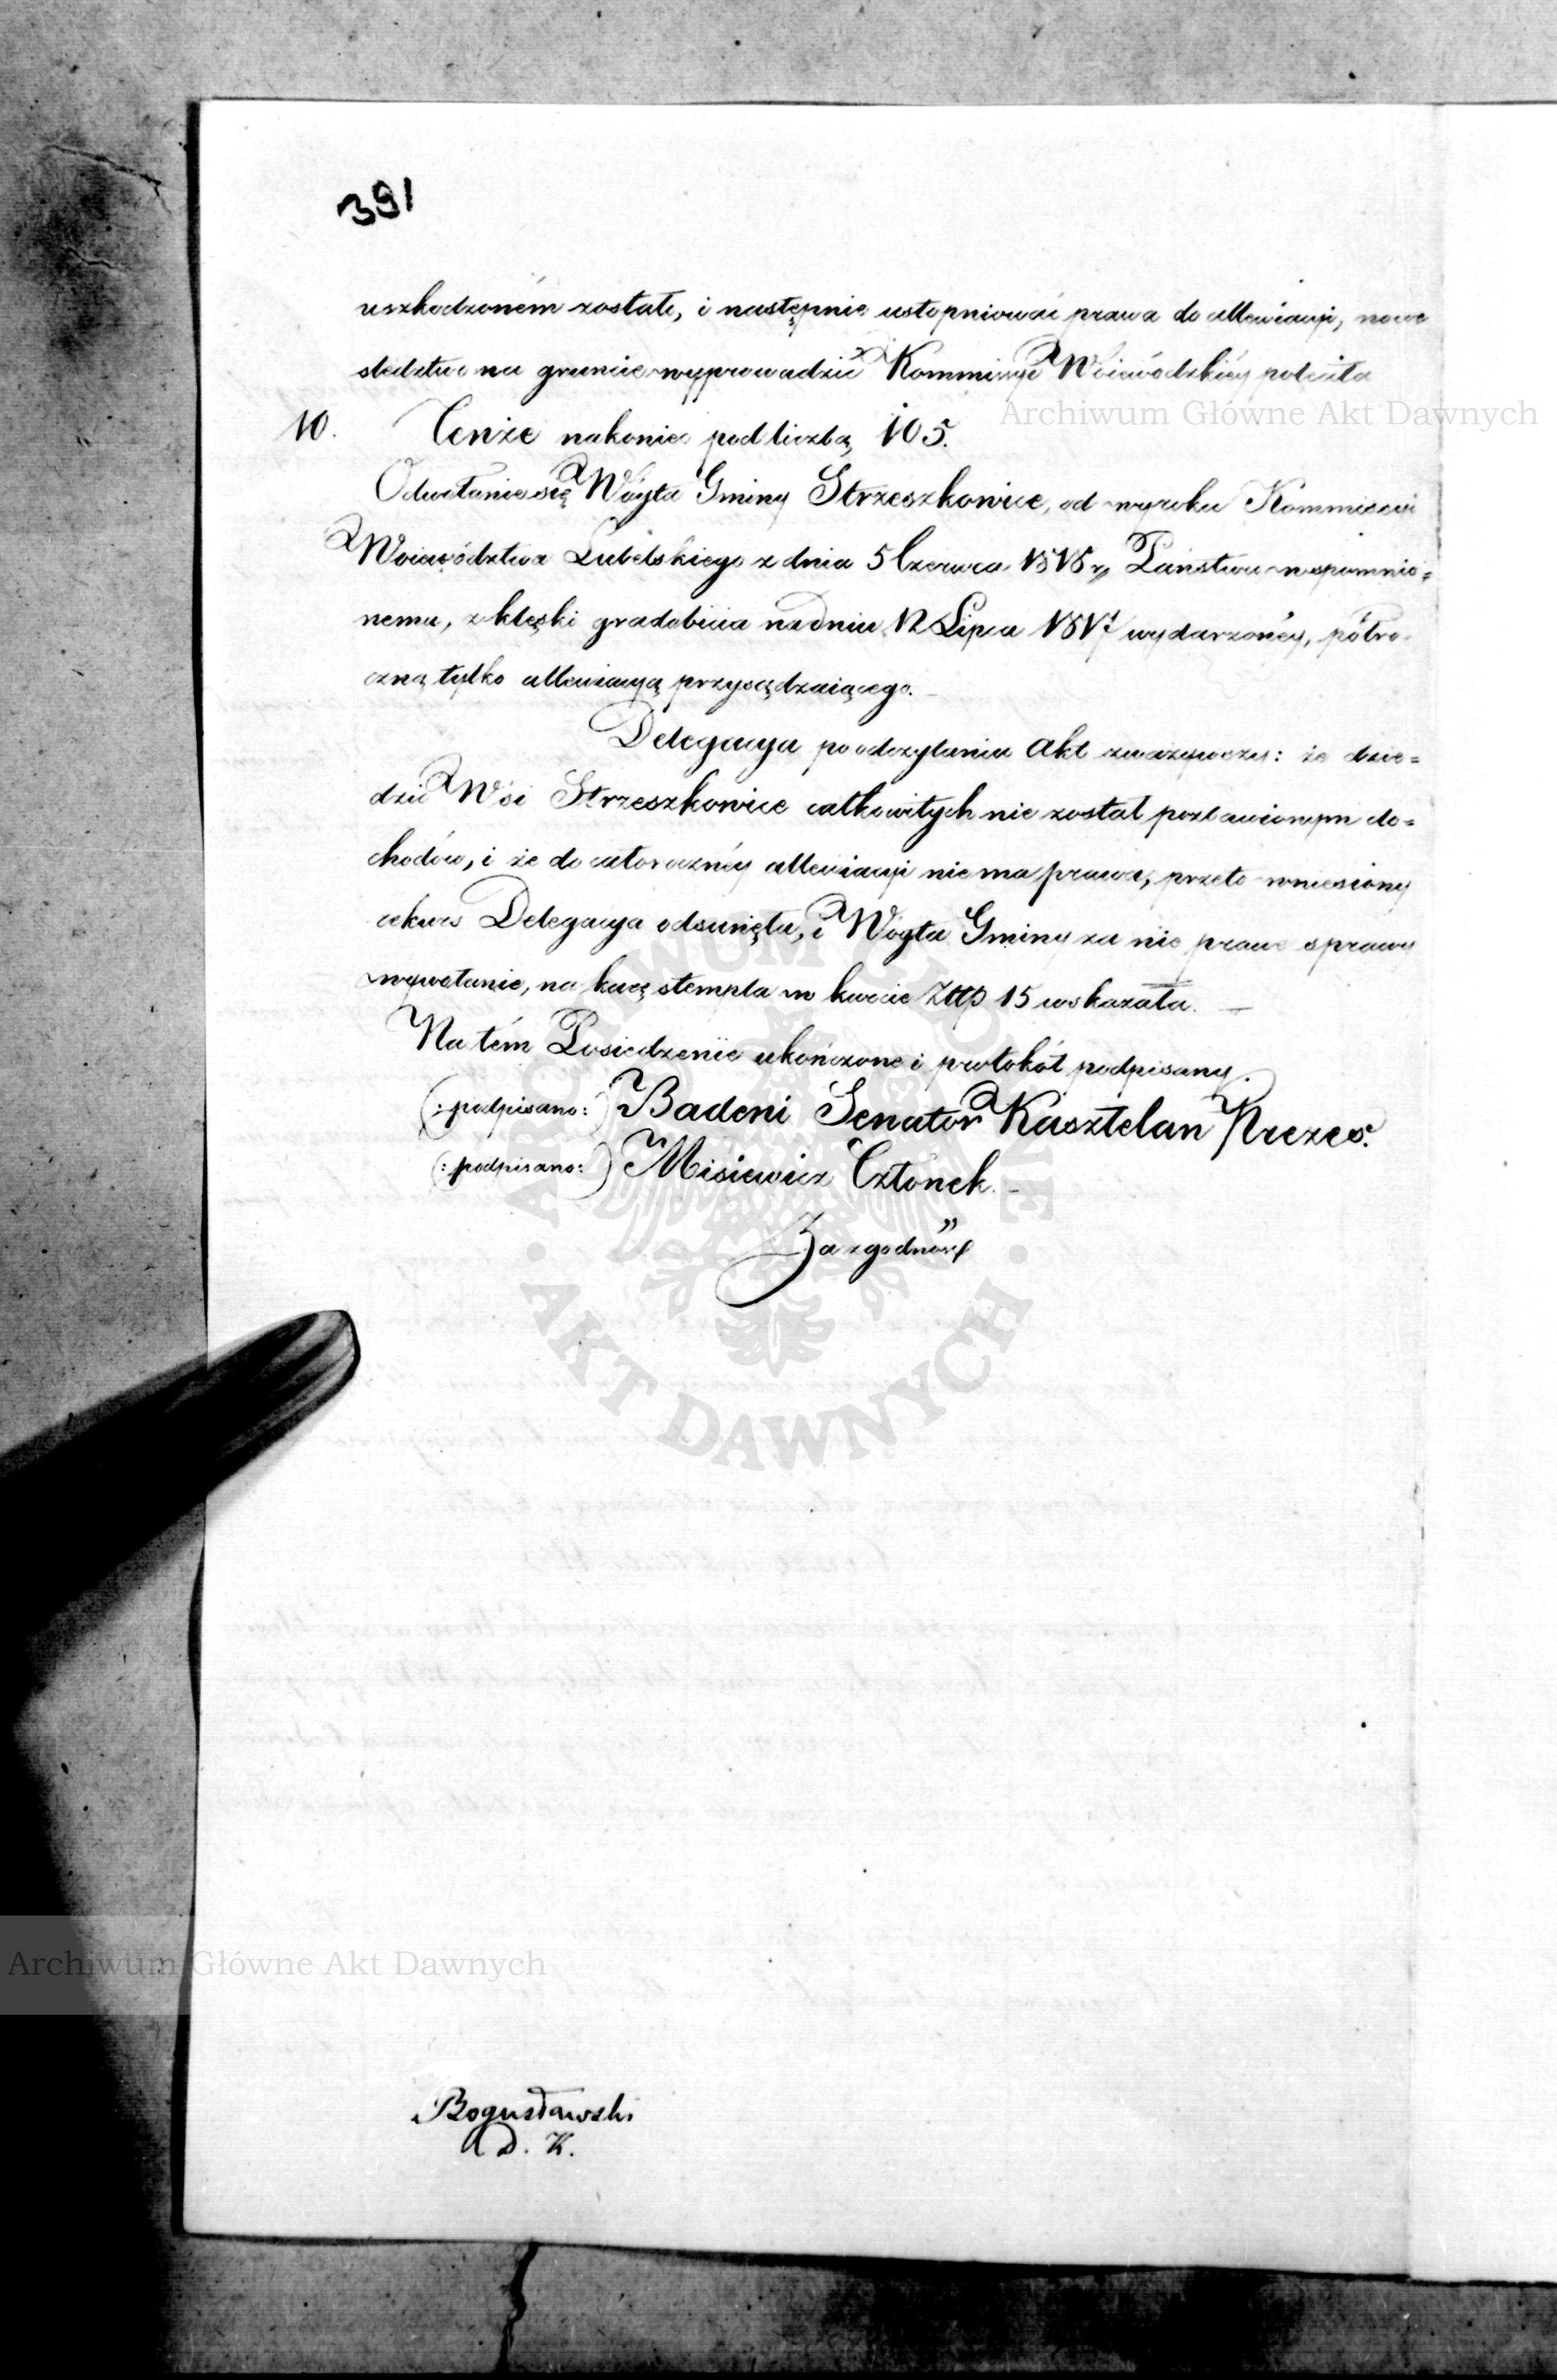 391
uszkodzoném zostało, i następnie ustopniować prawa do allewiacyi, nowe
śledztwo na gruncie wyprowadzić Kommissyi Wóiewódzkiéy poleciła
10. Tenże nakoniec pod liczbą 105.
Odwołanie się Wóyta Gminy Strzeszkowice, od wyroku Kommissyi
Woiewództwa Lubelskiego z dnia 5 Czerwca 1818 r. Państwu wspomnio=
nemu, z klęski gradobicia na dniu 12 Lipca 1817 wydarzonéy, półro-
czną tylko allewiacyą przysądzaiącego. —
Delegacya po odczytaniu Akt zważywszy: że dzie=
dzic Wsi Strzeszkowice całkowitych nie został pozbawionym do=
chodów, i że do całoroczney allewiacyi nie ma prawa, przeto wniesiony
rekurs Delegacya odsunęła, i Wóyta Gminy za nie prawe sprawy
wywołanie, na karę stempla w kwocie Złtp 15 wskazała. —
Na tém Posiedzenie ukończone i protokół podpisany.
(: podpisano :) Badeni Senator Kasztelan Prezes.
(: podpisano :) Misiewicz Członek. —
Za zgodność
Archiwum Główne Akt Dawnych
ARCHIWUM GŁÓWNE • AKT DAWNYCH •
Archiwum Główne Akt Dawnych
Bogusławski
A D. K.